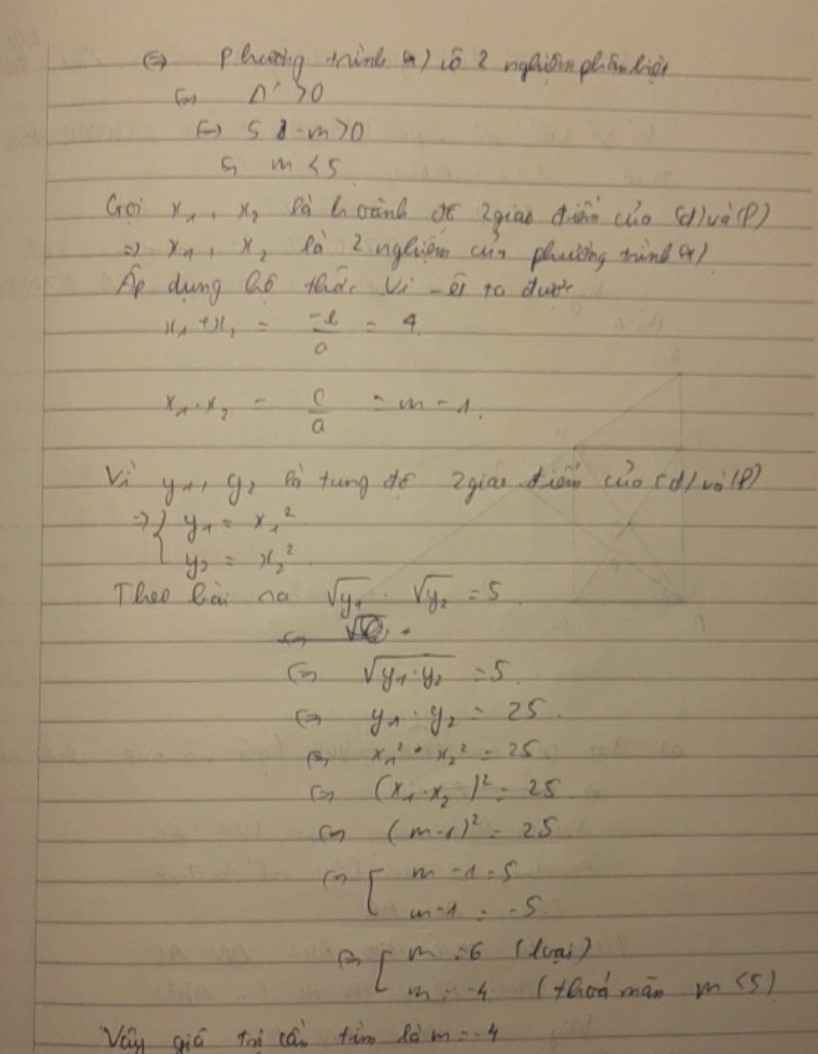 ⇔ Phương trình (*) có 2 nghiệm phân biệt
⇔ Δ' > 0
⇔ 5 - m > 0
⇔ m < 5
Gọi x₁, x₂ là hoành độ 2 giao điểm của (d) và (P)
=> x₁, x₂ là 2 nghiệm của phương trình (*)
Áp dụng hệ thức Vi-ét ta được
x₁ + x₂ = -b/a = 4
x₁ . x₂ = c/a = m - 1.
Vì y₁, y₂ là tung độ 2 giao điểm của (d) và (P)
=> { y₁ = x₁²
y₂ = x₂²
Theo bài ra √y₁ . √y₂ = 5.
⇔ √(y₁ . y₂) = 5.
⇔ y₁ . y₂ = 25.
⇔ x₁² . x₂² = 25
⇔ (x₁ . x₂)² = 25.
⇔ (m - 1)² = 25
⇔ [ m - 1 = 5
m - 1 = -5
⇔ [ m = 6 (loại)
m = -4 (thoả mãn m < 5)
Vậy giá trị cần tìm là m = -4